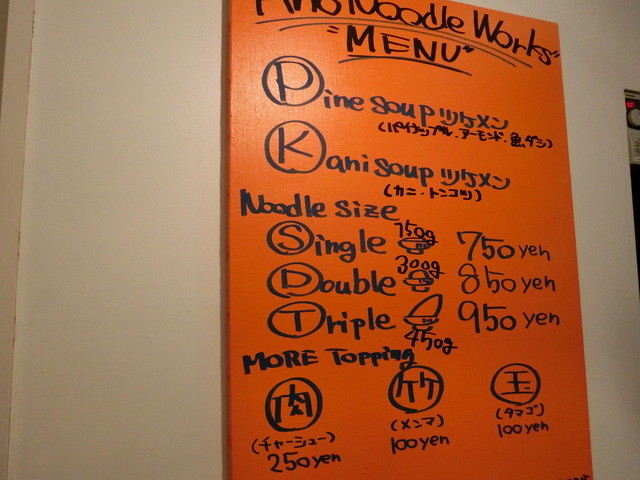 Noodle Works"
"MENU"
Pine Soup ツケメン
(パイナップル・アーモンド・魚ダシ)
Kani Soup ツケメン
(カニ・トンコツ)
Noodle Size
Single 150g 750 yen
Double 300g 850 yen
Triple 450g 950 yen
MORE Topping
肉 竹 玉
(チャーシュー) (メンマ) (タマゴ)
250 yen 100 yen 100 yen